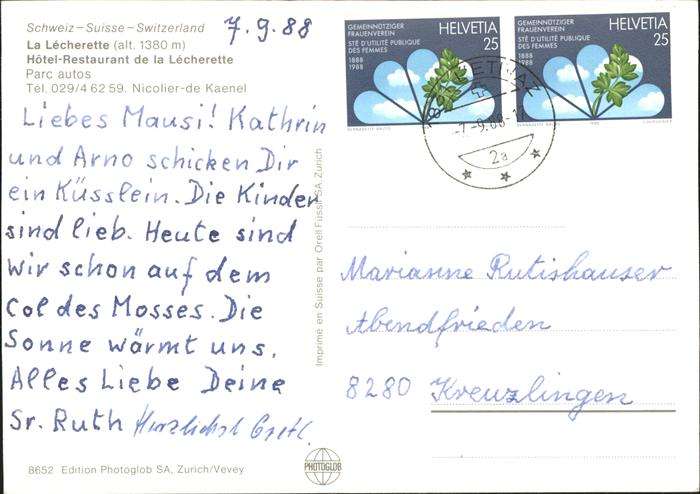 Schweiz – Suisse – Switzerland
La Lécherette (alt. 1380 m)
Hôtel-Restaurant de la Lécherette
Parc autos
Tél. 029/4 62 59. Nicolier-de Kaenel
7.9.88
Liebes Mausi! Kathrin
und Arno schicken Dir
ein Küsslein. Die Kinder
sind lieb. Heute sind
wir schon auf dem
Col des Mosses. Die
Sonne wärmt uns.
Alles Liebe Deine
Sr. Ruth Herzlichst Gretl.
8652 Edition Photoglob SA, Zurich/Vevey
PHOTOGLOB
Imprimé en Suisse par Orell Füssli SA, Zurich
GEMEINNÜTZIGER
FRAUENVEREIN
STÉ D'UTILITÉ PUBLIQUE
DES FEMMES
1888
1988
HELVETIA
25
GEMEINNÜTZIGER
FRAUENVEREIN
STÉ D'UTILITÉ PUBLIQUE
DES FEMMES
1888
1988
HELVETIA
25
-7.-9.88-1
2a
Marianne Rutishauser
Abendfrieden
8280 Kreuzlingen